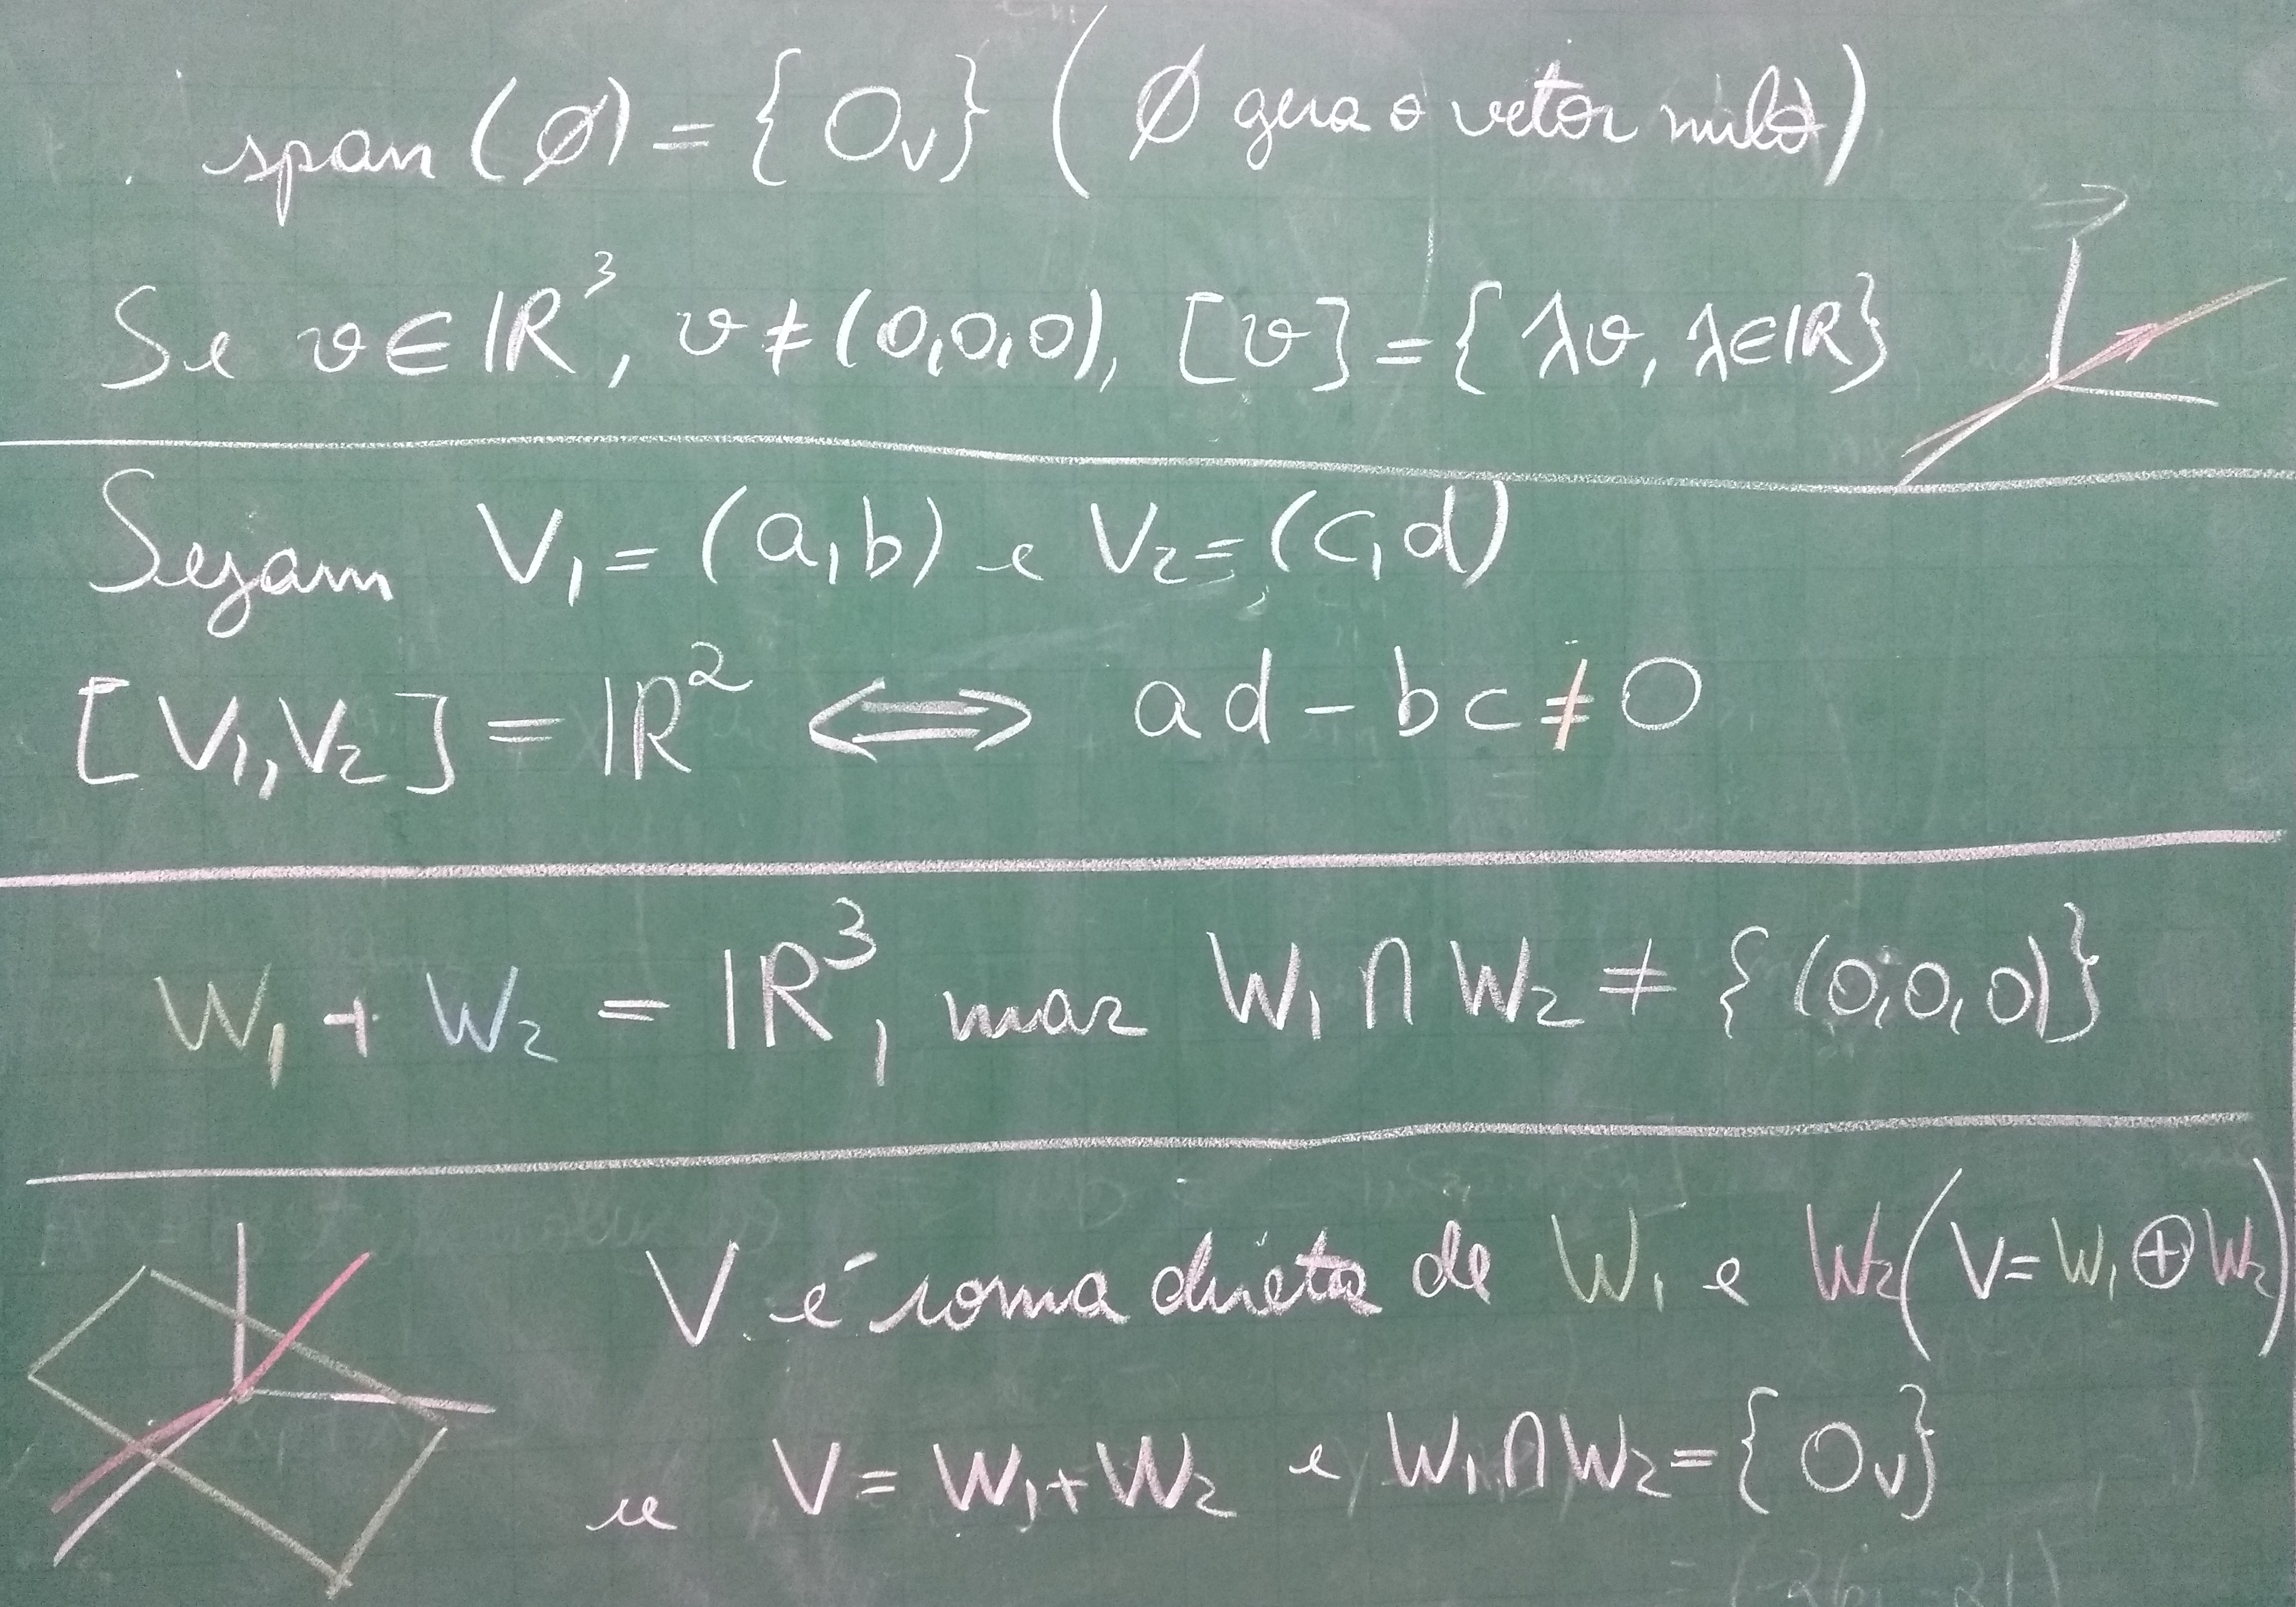 span (∅) = {0_V} (∅ gera o vetor nulo)
Se v ∈ ℝ³, v ≠ (0,0,0), [v] = { λv, λ∈ℝ}
Sejam V₁ = (a,b) e V₂ = (c,d)
[V₁,V₂] = ℝ² ⟺ ad - bc ≠ 0
W₁ + W₂ = ℝ³, mas W₁ ∩ W₂ ≠ {(0,0,0)}
V é soma direta de W₁ e W₂ (V = W₁ ⊕ W₂)
se V = W₁ + W₂ e W₁ ∩ W₂ = {0_V}